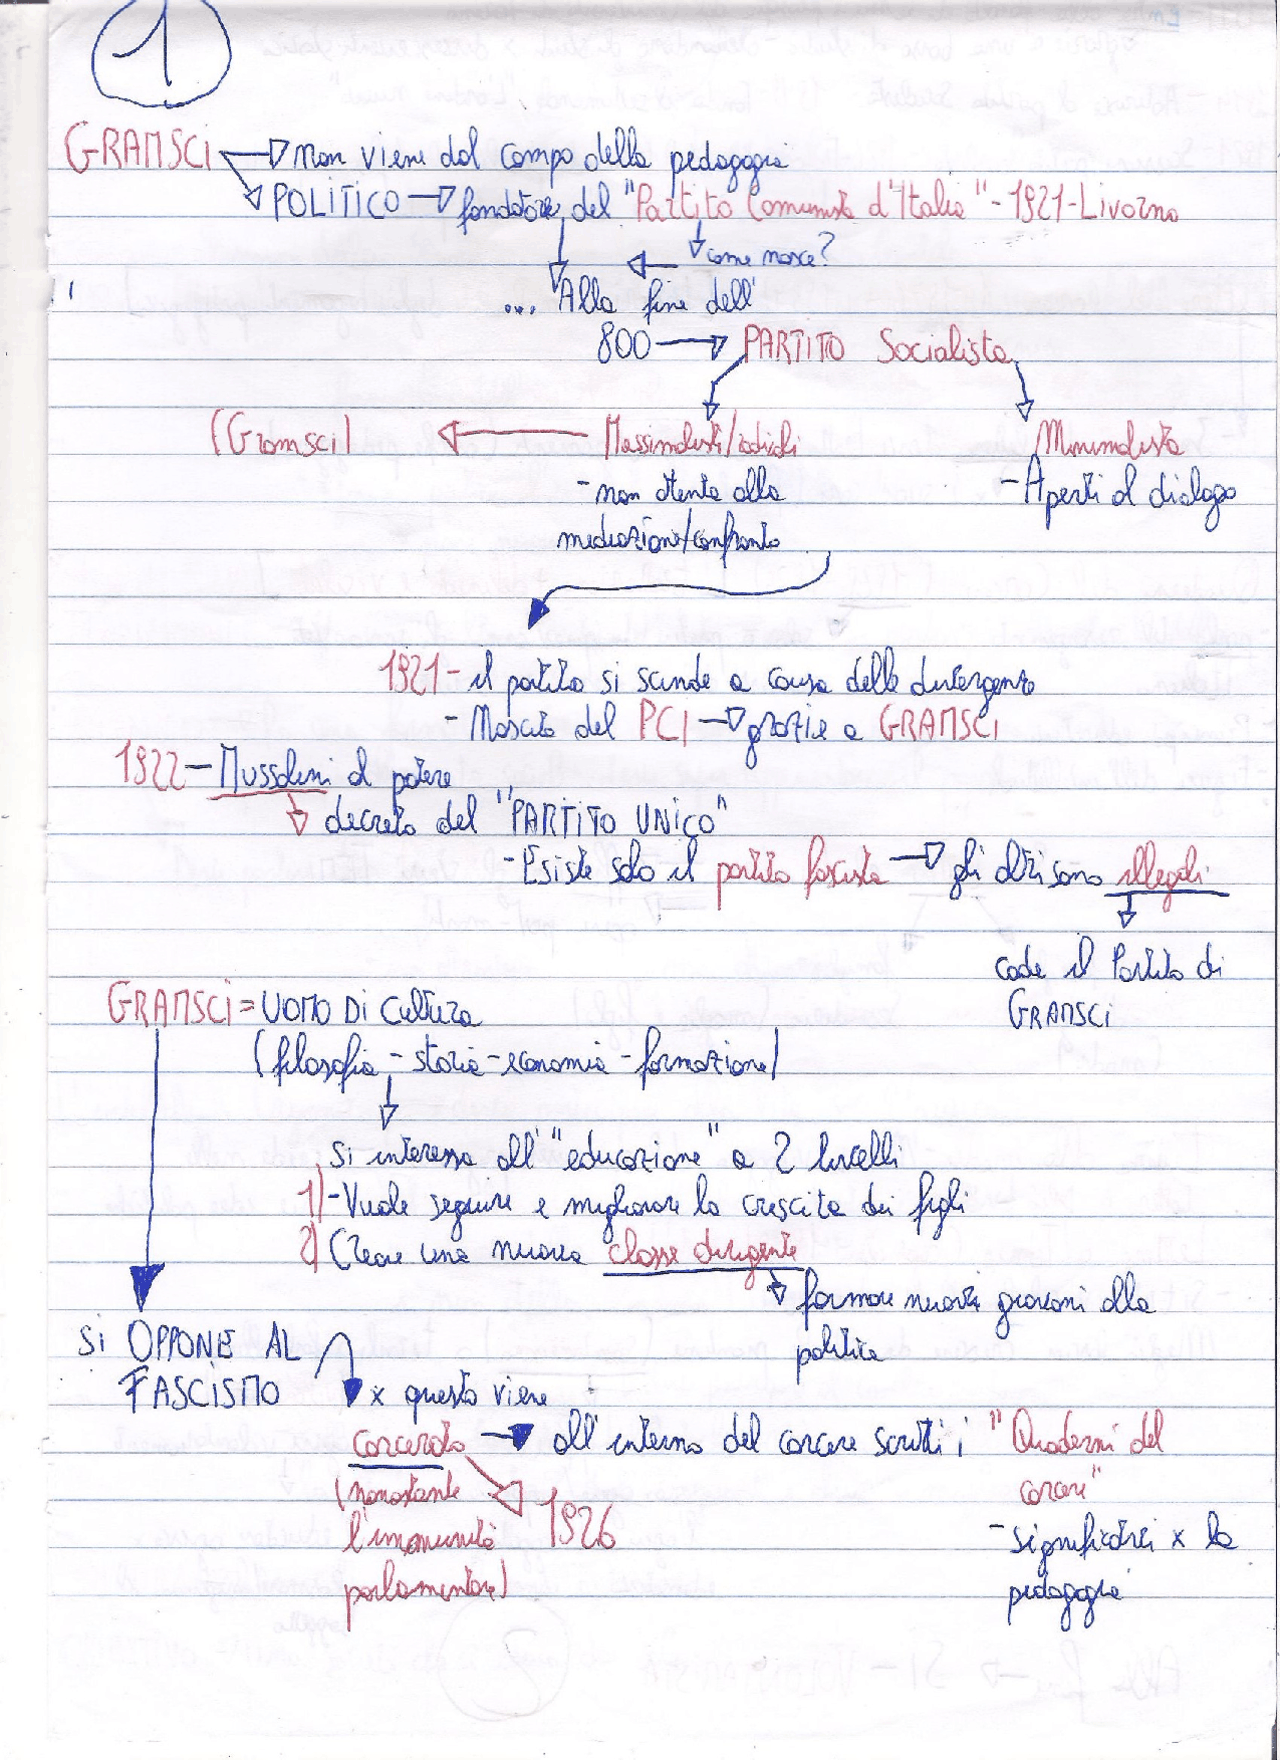 1
GRAMSCI → non viene dal campo della pedagogia
POLITICO → fondatore del "Partito Comunista d'Italia" - 1921 - Livorno
come nasce?
... Alla fine dell'
800 → PARTITO Socialista
(Gramsci) ← Massimalisti/radicali
Minimalista
- non attenta alla
- Aperti al dialogo
mediazione/confronto
1921 - il partito si scinde a causa delle divergenze
- Nascita del PCI → grazie a GRAMSCI
1922 - Mussolini al potere
decreto del "PARTITO UNICO"
- Esiste solo il partito fascista → gli altri sono illegali
cade il Partito di
GRAMSCI
GRAMSCI = UOMO DI CULTURA
(filosofia - storia - economia - formazione)
Si interessa all' "educazione" a 2 livelli
1) - Vuole seguire e migliorare la crescita dei figli
2) Creare una nuova classe dirigente
formare nuovi giovani alla
politica
Si OPPONE AL
FASCISMO
x questo viene
carcerato → all'interno del carcere scritti i "Quaderni del
carcere"
(nonostante
l'immunità
parlamentare)
1926
- significativi x la
pedagogia